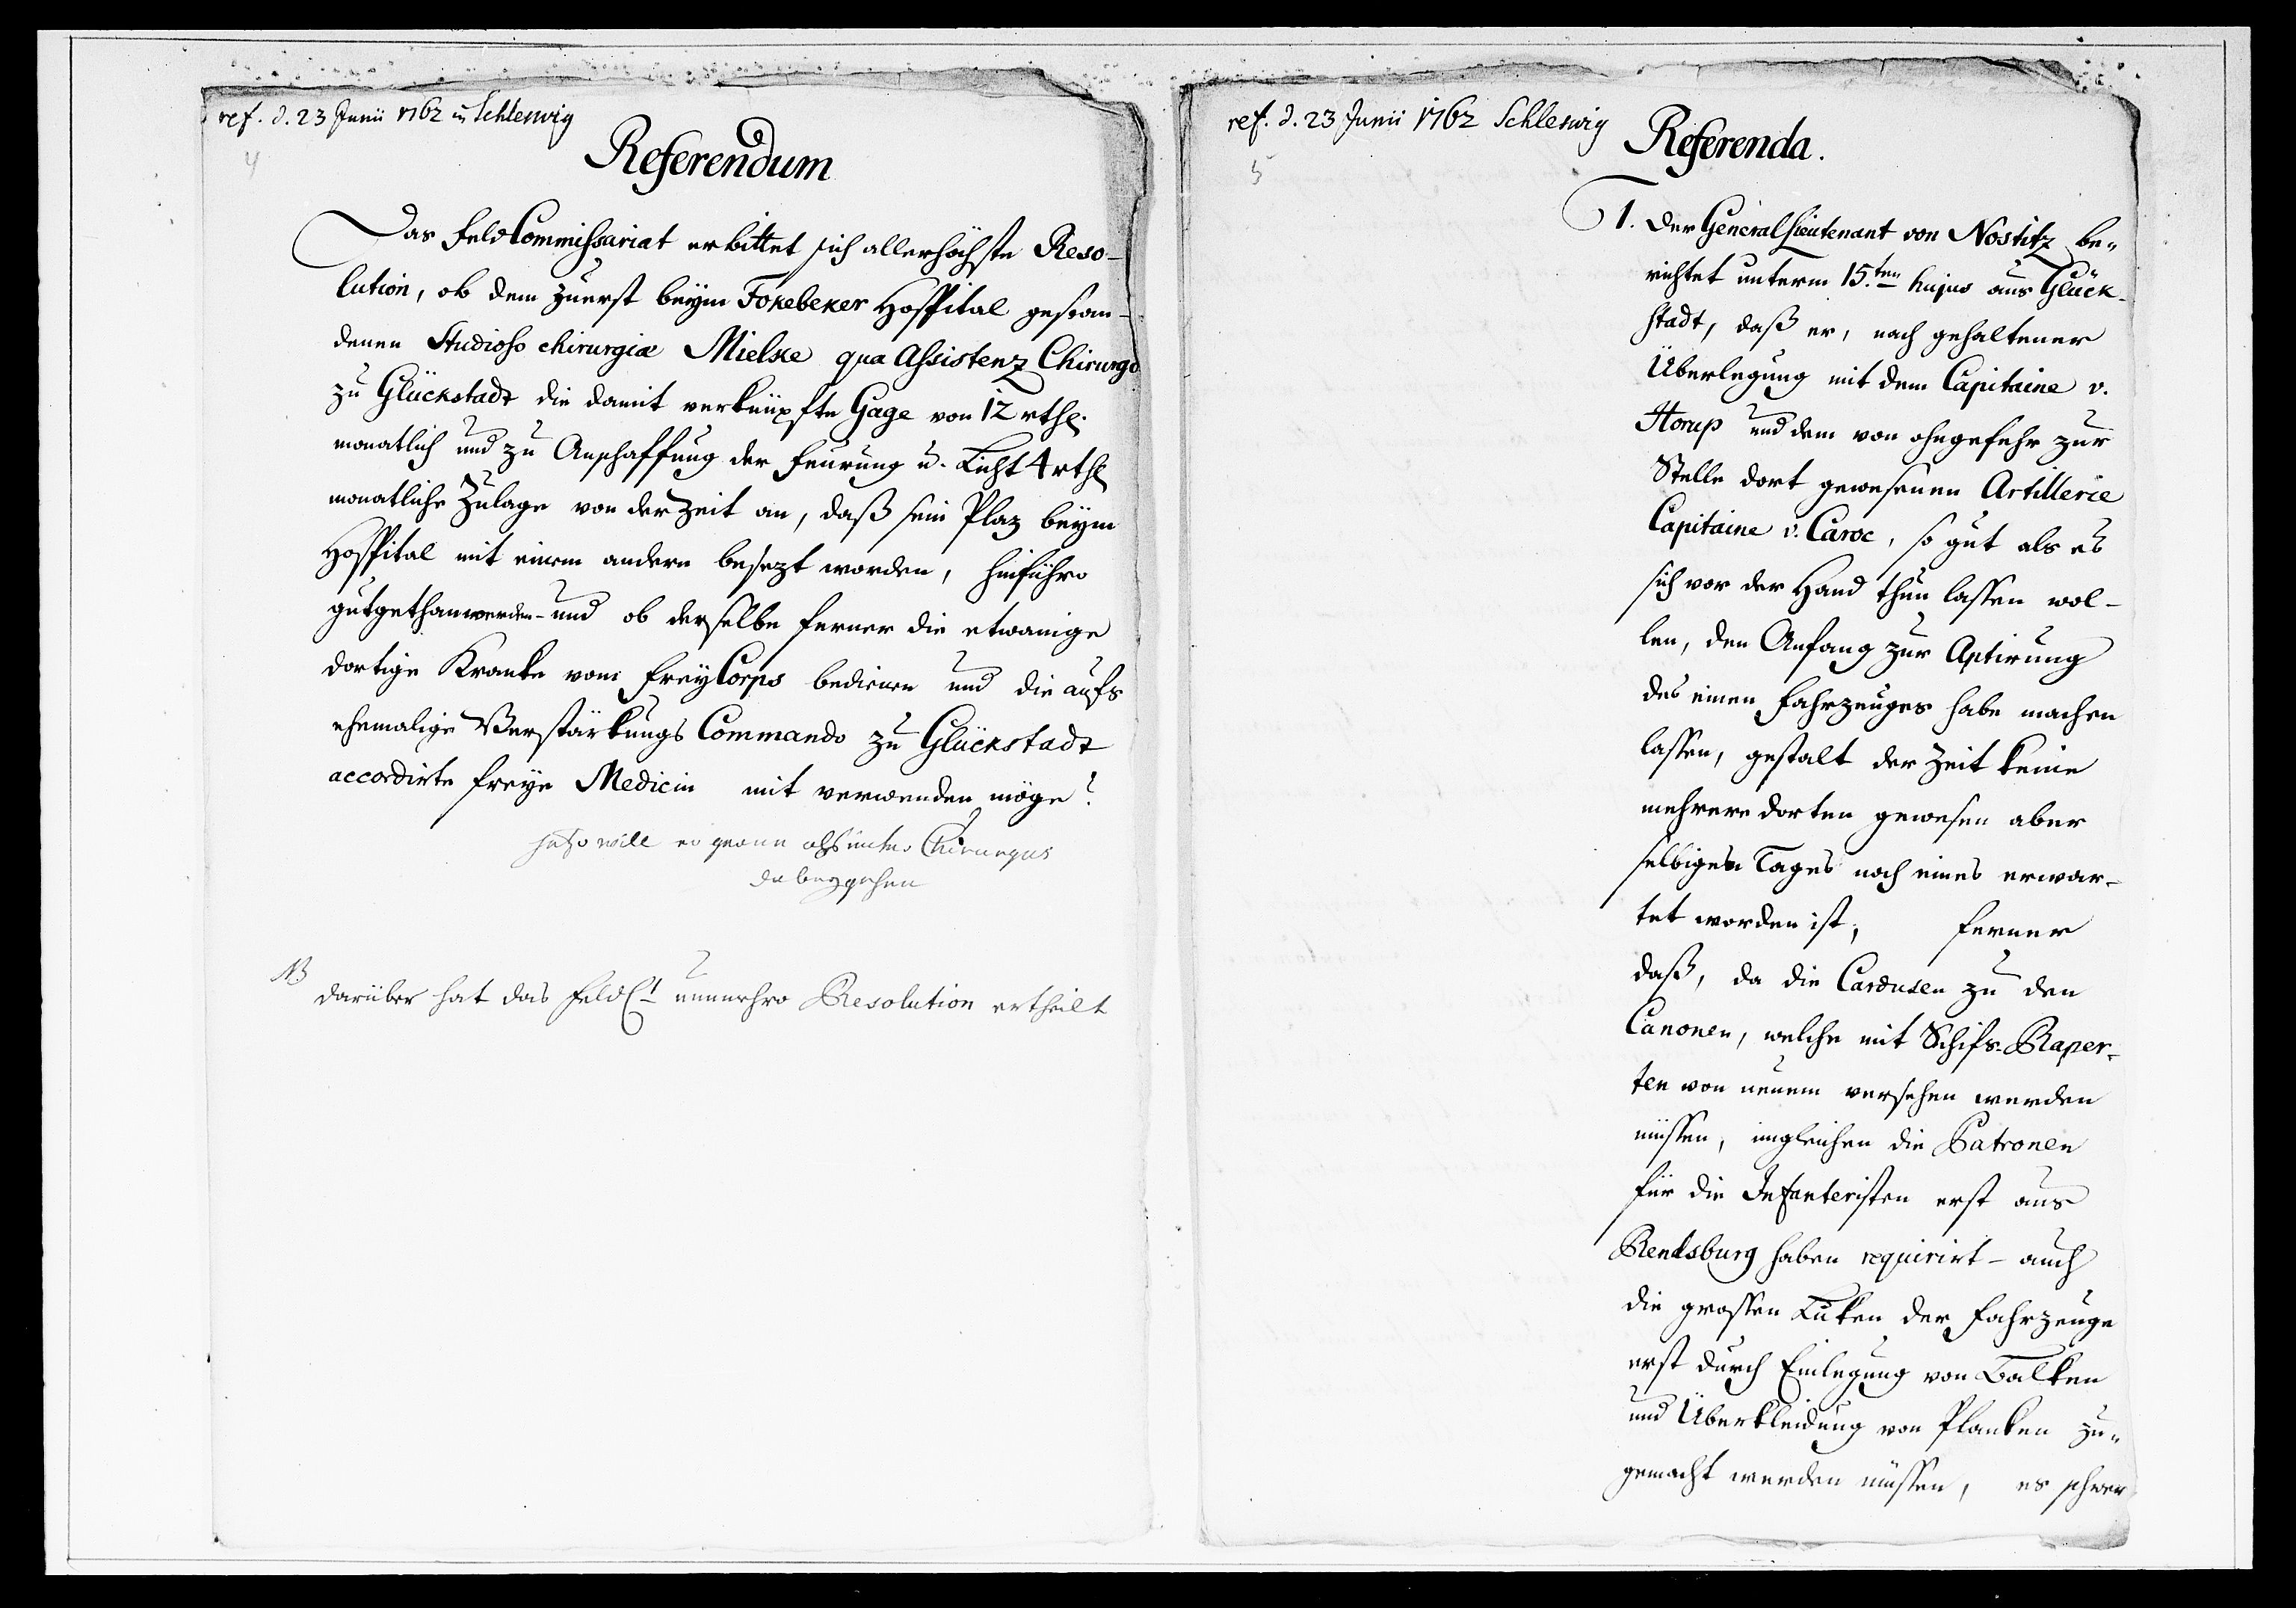 ref. d. 23 Junii 1762 in Schleswig
4
Referendum
Das FeldCommissariat erbittet sich allerhöchste Reso-
lution, ob dem zuerst beym Fokebeker Hospital gestan-
denen Studioso chirurgiæ Mielske qua Assistenz Chirurgo
zu Glückstadt die damit verknüpfte Gage von 12 rthl.
monatlich und zu Anschaffung der Feurung u. Licht 4 rthl
monatliche Zulage von der Zeit an, daß sein Plaz beym
Hospital mit einem andern besezt worden, hinführo
gutgethan werden - und ob derselbe ferner die etwanige
dortige Kranke vom FreyCorps bedienen und die aufs
ehemalige Verstärkungs Commando zu Glückstadt
accordirte freye Medicin mit verwenden möge?
will er Chirurgus
NB
darüber hat das Feld Ct nunmehro Resolution ertheilt
ref. d. 23 Junii 1762 Schleswig
5
Referenda.
1. Der GeneralLieutenant von Nostitz be-
richtet unterm 15.ten hujus aus Glück-
stadt, daß er, nach gehaltener
Überlegung mit dem Capitaine v.
Storup und dem von ohngefehr zur
Stelle dort gewesenen Artillerie
Capitaine v. Caroc, so gut als es
sich vor der Hand thun lassen wol-
len, den Anfang zur Aptirung
des einen Fahrzeuges habe machen
lassen, gestalt der Zeit keine
mehrere dorten gewesen aber
selbigen Tages noch eines erwar-
tet worden ist; ferner
daß, da die Cardusen zu den
Canonen, welche mit Schifs-Raper-
ten von neuem versehen werden
müssen, imgleichen die Patronen
für die Infanteristen erst aus
Rendsburg haben requirirt - auch
die grossen Luken der Fahrzeuge
erst durch Einlegung von Balken
und Überkleidung von Planken zu-
gemacht werden müssen, es schwer